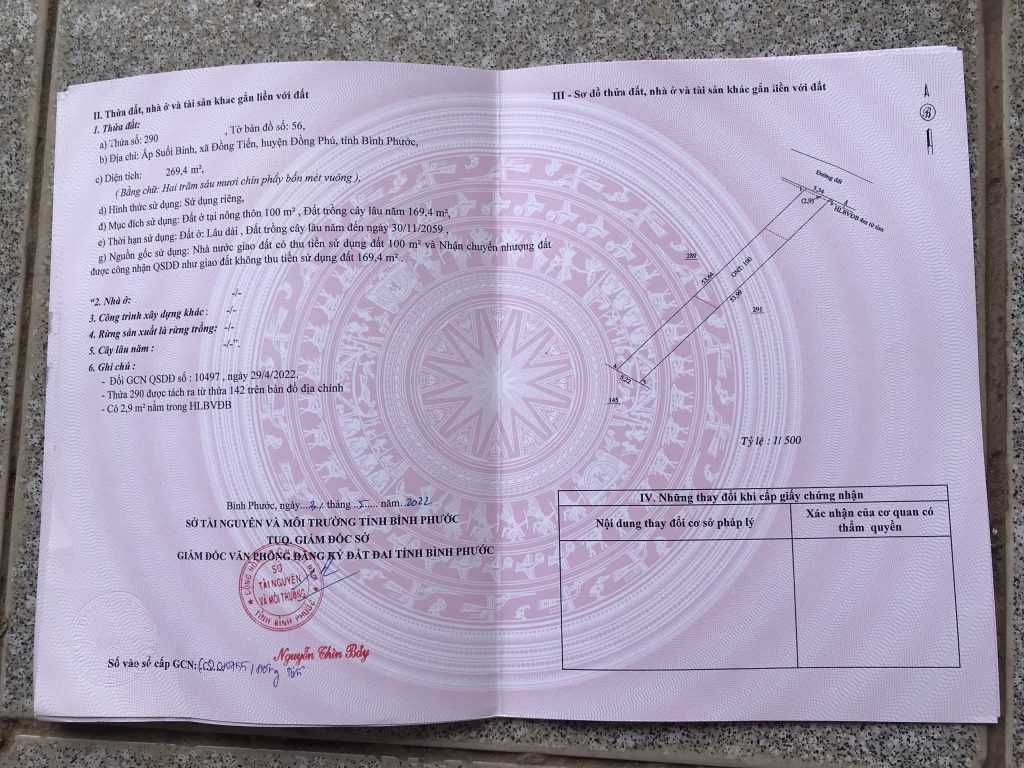 II. Thửa đất, nhà ở và tài sản khac gắn liền với đất
1. Thửa đất:
a) Thửa số: 290 , Tờ bản đồ số: 56,
b) Địa chỉ: Ấp Suối Binh, xã Đồng Tiến, huyện Đồng Phú, tỉnh Bình Phước,
c) Diện tích: 269,4 m²,
( Bằng chữ: Hai trăm sáu mươi chín phẩy bốn mét vuông ),
d) Hình thức sử dụng: Sử dụng riêng,
đ) Mục đích sử dụng: Đất ở tại nông thôn 100 m² , Đất trồng cây lâu năm 169,4 m²,
e) Thời hạn sử dụng: Đất ở: Lâu dài , Đất trồng cây lâu năm đến ngày 30/11/2059 ,
g) Nguồn gốc sử dụng: Nhà nước giao đất có thu tiền sử dụng đất 100 m² và Nhận chuyển nhượng đất
được công nhận QSDĐ như giao đất không thu tiền sử dụng đất 169,4 m² .
“2. Nhà ở: -/-
3. Công trình xây dựng khác : -/-
4. Rừng sản xuất là rừng trồng: -/-
5. Cây lâu năm : -/-”.
6. Ghi chú :
- Đổi GCN QSDĐ số : 10497 , ngày 29/4/2022.
- Thửa 290 được tách ra từ thửa 142 trên bản đồ địa chính
- Có 2,9 m² nằm trong HLBVĐB
Bình Phước, ngày...31 tháng ..5..... năm..2022
SỞ TÀI NGUYÊN VÀ MÔI TRƯỜNG TỈNH BÌNH PHƯỚC
TUQ. GIÁM ĐỐC SỞ
GIÁM ĐỐC VĂN PHÒNG ĐĂNG KÝ ĐẤT ĐAI TỈNH BÌNH PHƯỚC
SỞ
TÀI NGUYÊN
VÀ MÔI TRƯỜNG
TỈNH BÌNH PHƯỚC
Nguyễn Thìn Bảy
Số vào sổ cấp GCN:
III - Sơ đồ thửa đất, nhà ở và tài sản khác gắn liền với đất
B
Đường đất
5,34
(2,9)
HLBVĐB 4m từ tim
289
53,66
ONT: 100
53,99
291
5,22
145
Tỷ lệ : 1/ 500
IV. Những thay đổi khi cấp giấy chứng nhận
Nội dung thay đổi cơ sở pháp lý
Xác nhận của cơ quan có
thẩm quyền